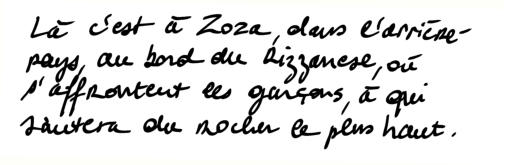 Là c'est à Zoza, dans l'arrière-
pays, au bord du Rizzanese, où
s'affrontent les garçons, à qui
sautera du rocher le plus haut.